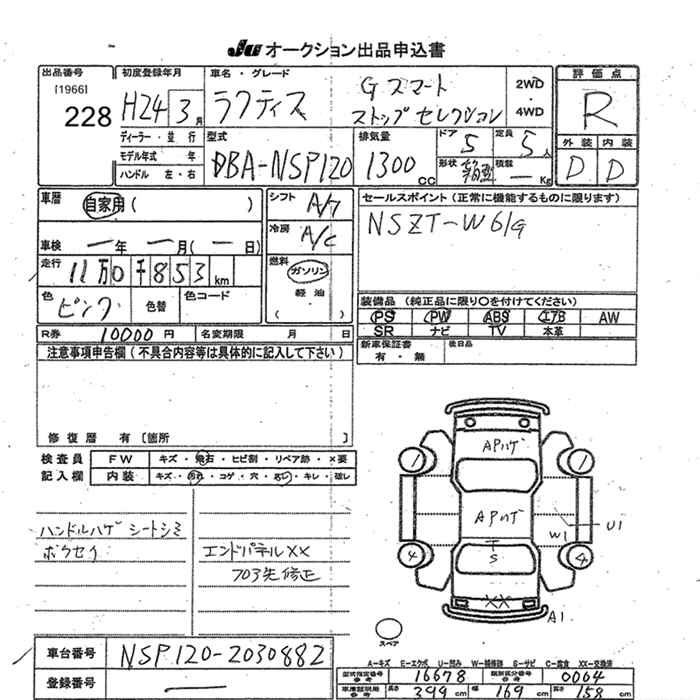 JU オークション出品申込書
出品番号
[1966]
228
初度登録年月
H24 3月
ディーラー・並 行
モデル年式 年
ハンドル 左・右
車名・グレード
ラクティス Gスマート
ストップセレクション
2WD
・
4WD
型式
DBA-NSP120
排気量
1300 cc
ドア
5
定員
5人
形状
積載
ー Kg
評価点
R
外装 内装
D D
車歴
自家用( )
車検 ー年 ー月(ー日)
走行 11万0千853km
色
ピンク
色替
色コード
シフト
冷房
A/C
燃料
ガソリン
軽油
( )
セールスポイント(正常に機能するものに限ります)
NSZT-W61G
装備品(純正品に限り○を付けてください)
PS PW ABS エアB AW
SR ナビ TV 本革
新車保証書
有・無
後日品
R券 10000円
名変期限 月 日
注意事項申告欄(不具合内容等は具体的に記入して下さい)
修復歴 有〔箇所 〕
検査員
記入欄
FW キズ・飛石・ヒビ割・リペア跡・×要
内装 キズ・汚れ・コゲ・穴・スレ・キレ・破レ
ハンドルハゲ シートシミ
ボウセイ
エンドパネルXX
703先修正
APハゲ
APハゲ
1
1
4
4
T
S
W1
U1
XX
A1
スペア
A-キズ E-エクボ U-凹み W-補修跡 S-サビ C-腐食 XX-交換済
車台番号 NSP120-2030882
登録番号 ー
型式指定番号
参考
16678
類別区分番号
参考
0064
車庫証明用
参考
長さ 399cm 幅 169cm 高さ 158cm